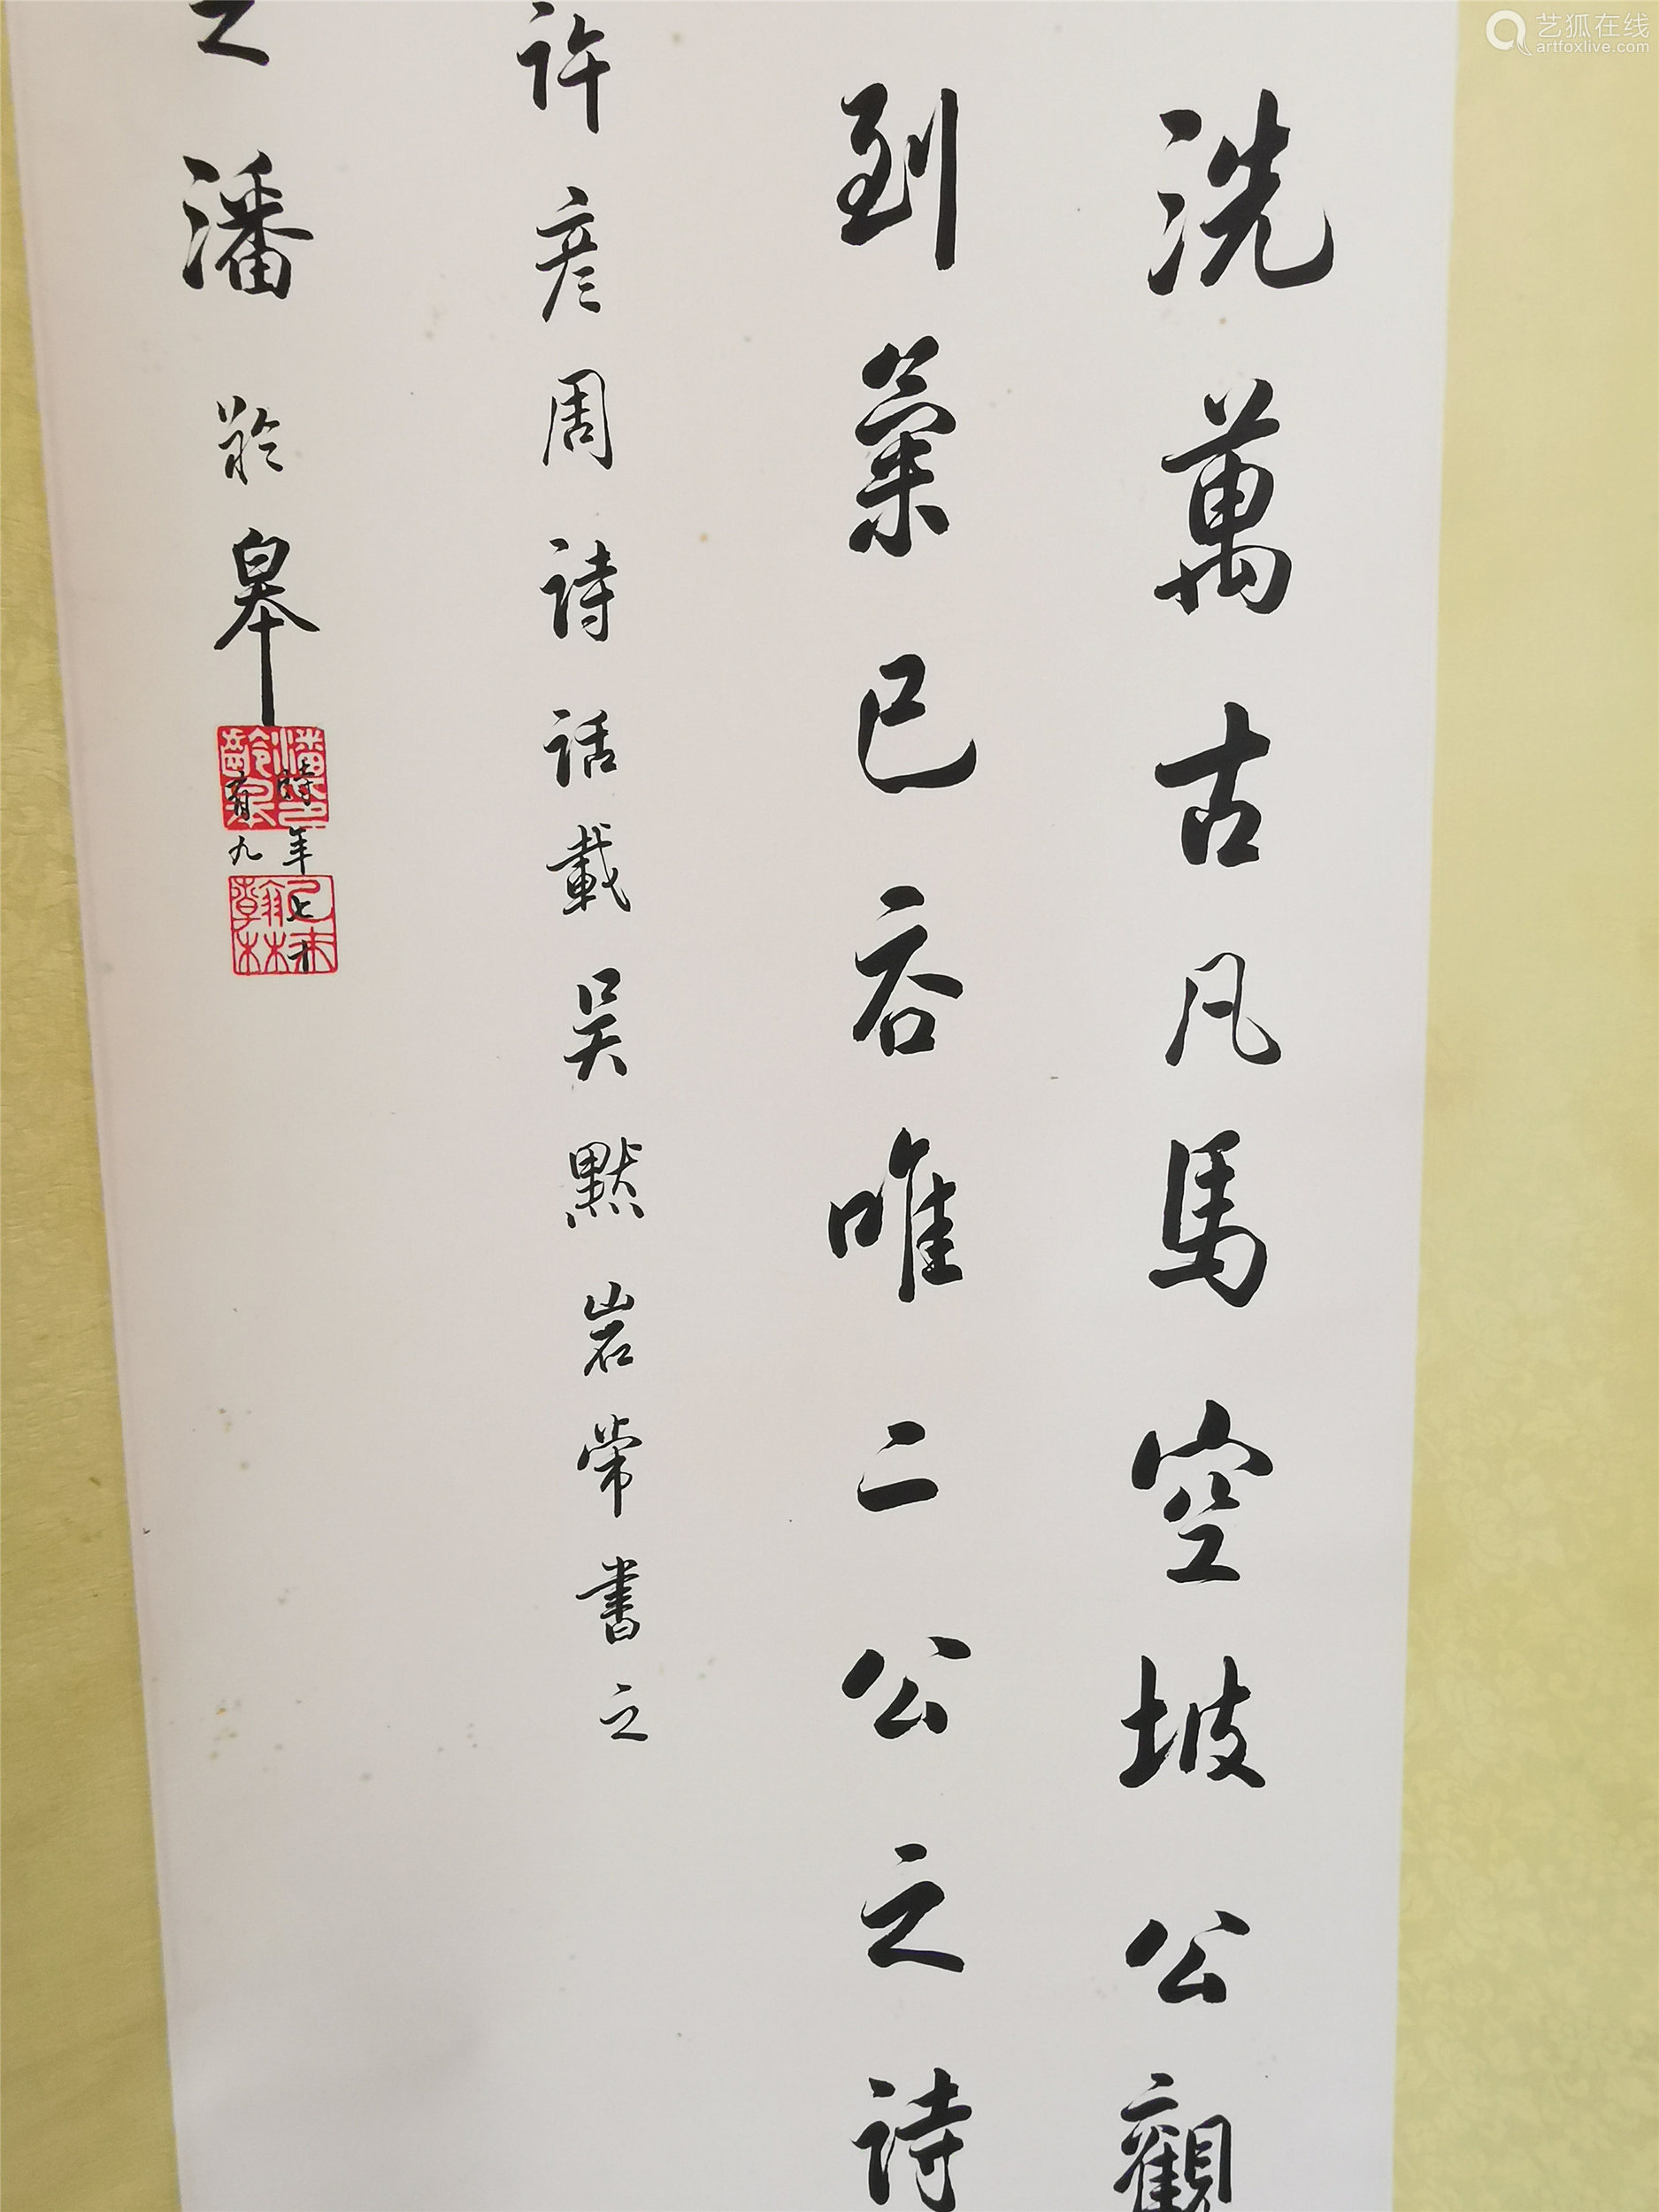 洗萬古凡馬空坡公觀
到氣已吞唯二公之詩
許彦周詩話載吳默岩常書之
之潘齡皋
時年七十
有九
潘齡皋印
己未翰林
艺狐在线
artfoxlive.com